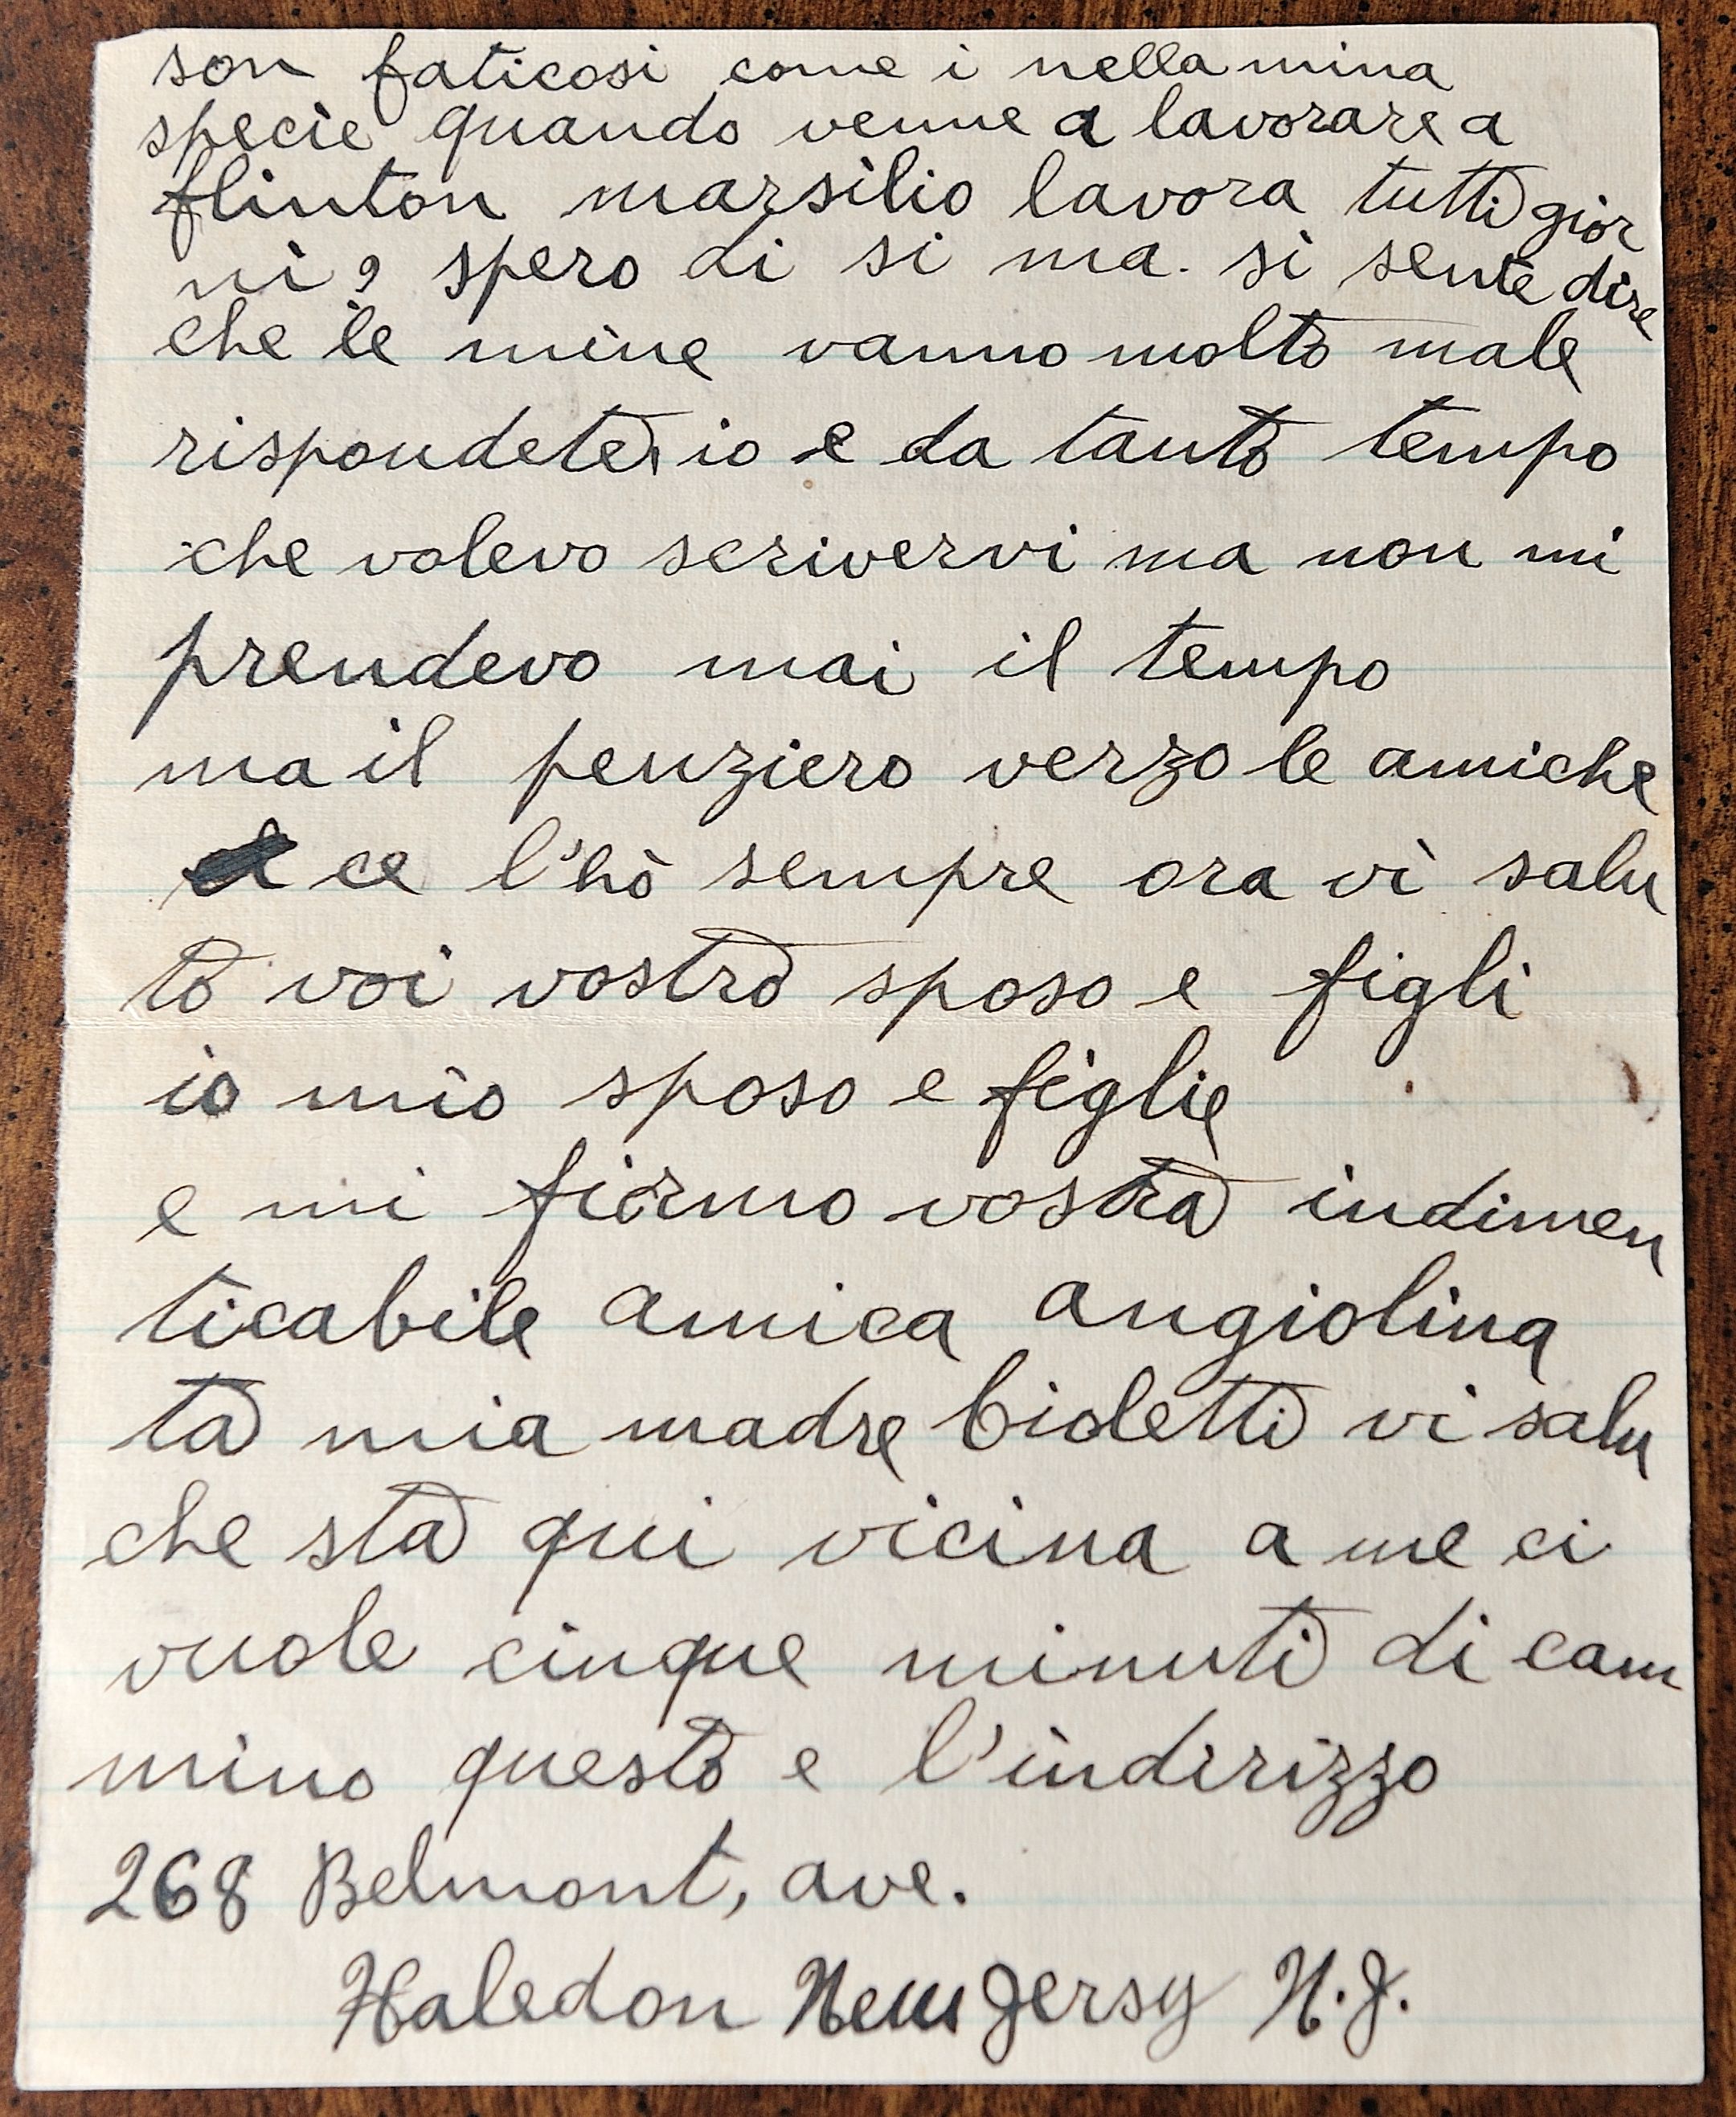 son faticosi come i nella mina
specie quando venne a lavorare a
flinton marsilio lavora tutti gior
ni? spero di si ma. si sente dire
che le mine vanno molto male
rispondete, io e da tanto tempo
che volevo scrivervi ma non mi
prendevo mai il tempo
ma il penziero verzo le amiche
ce l'hò sempre ora vi salu
to voi vostro sposo e figli
io mio sposo e figlie
e mi firmo vostra indimen
ticabile amica angiolina
ta mia madre bioletti vi salu
che sta qui vicina a me ci
vuole cinque minuti di cam
mino questo e l'indirizzo
268 Belmont, ave.
Haledon New Jersy N.J.